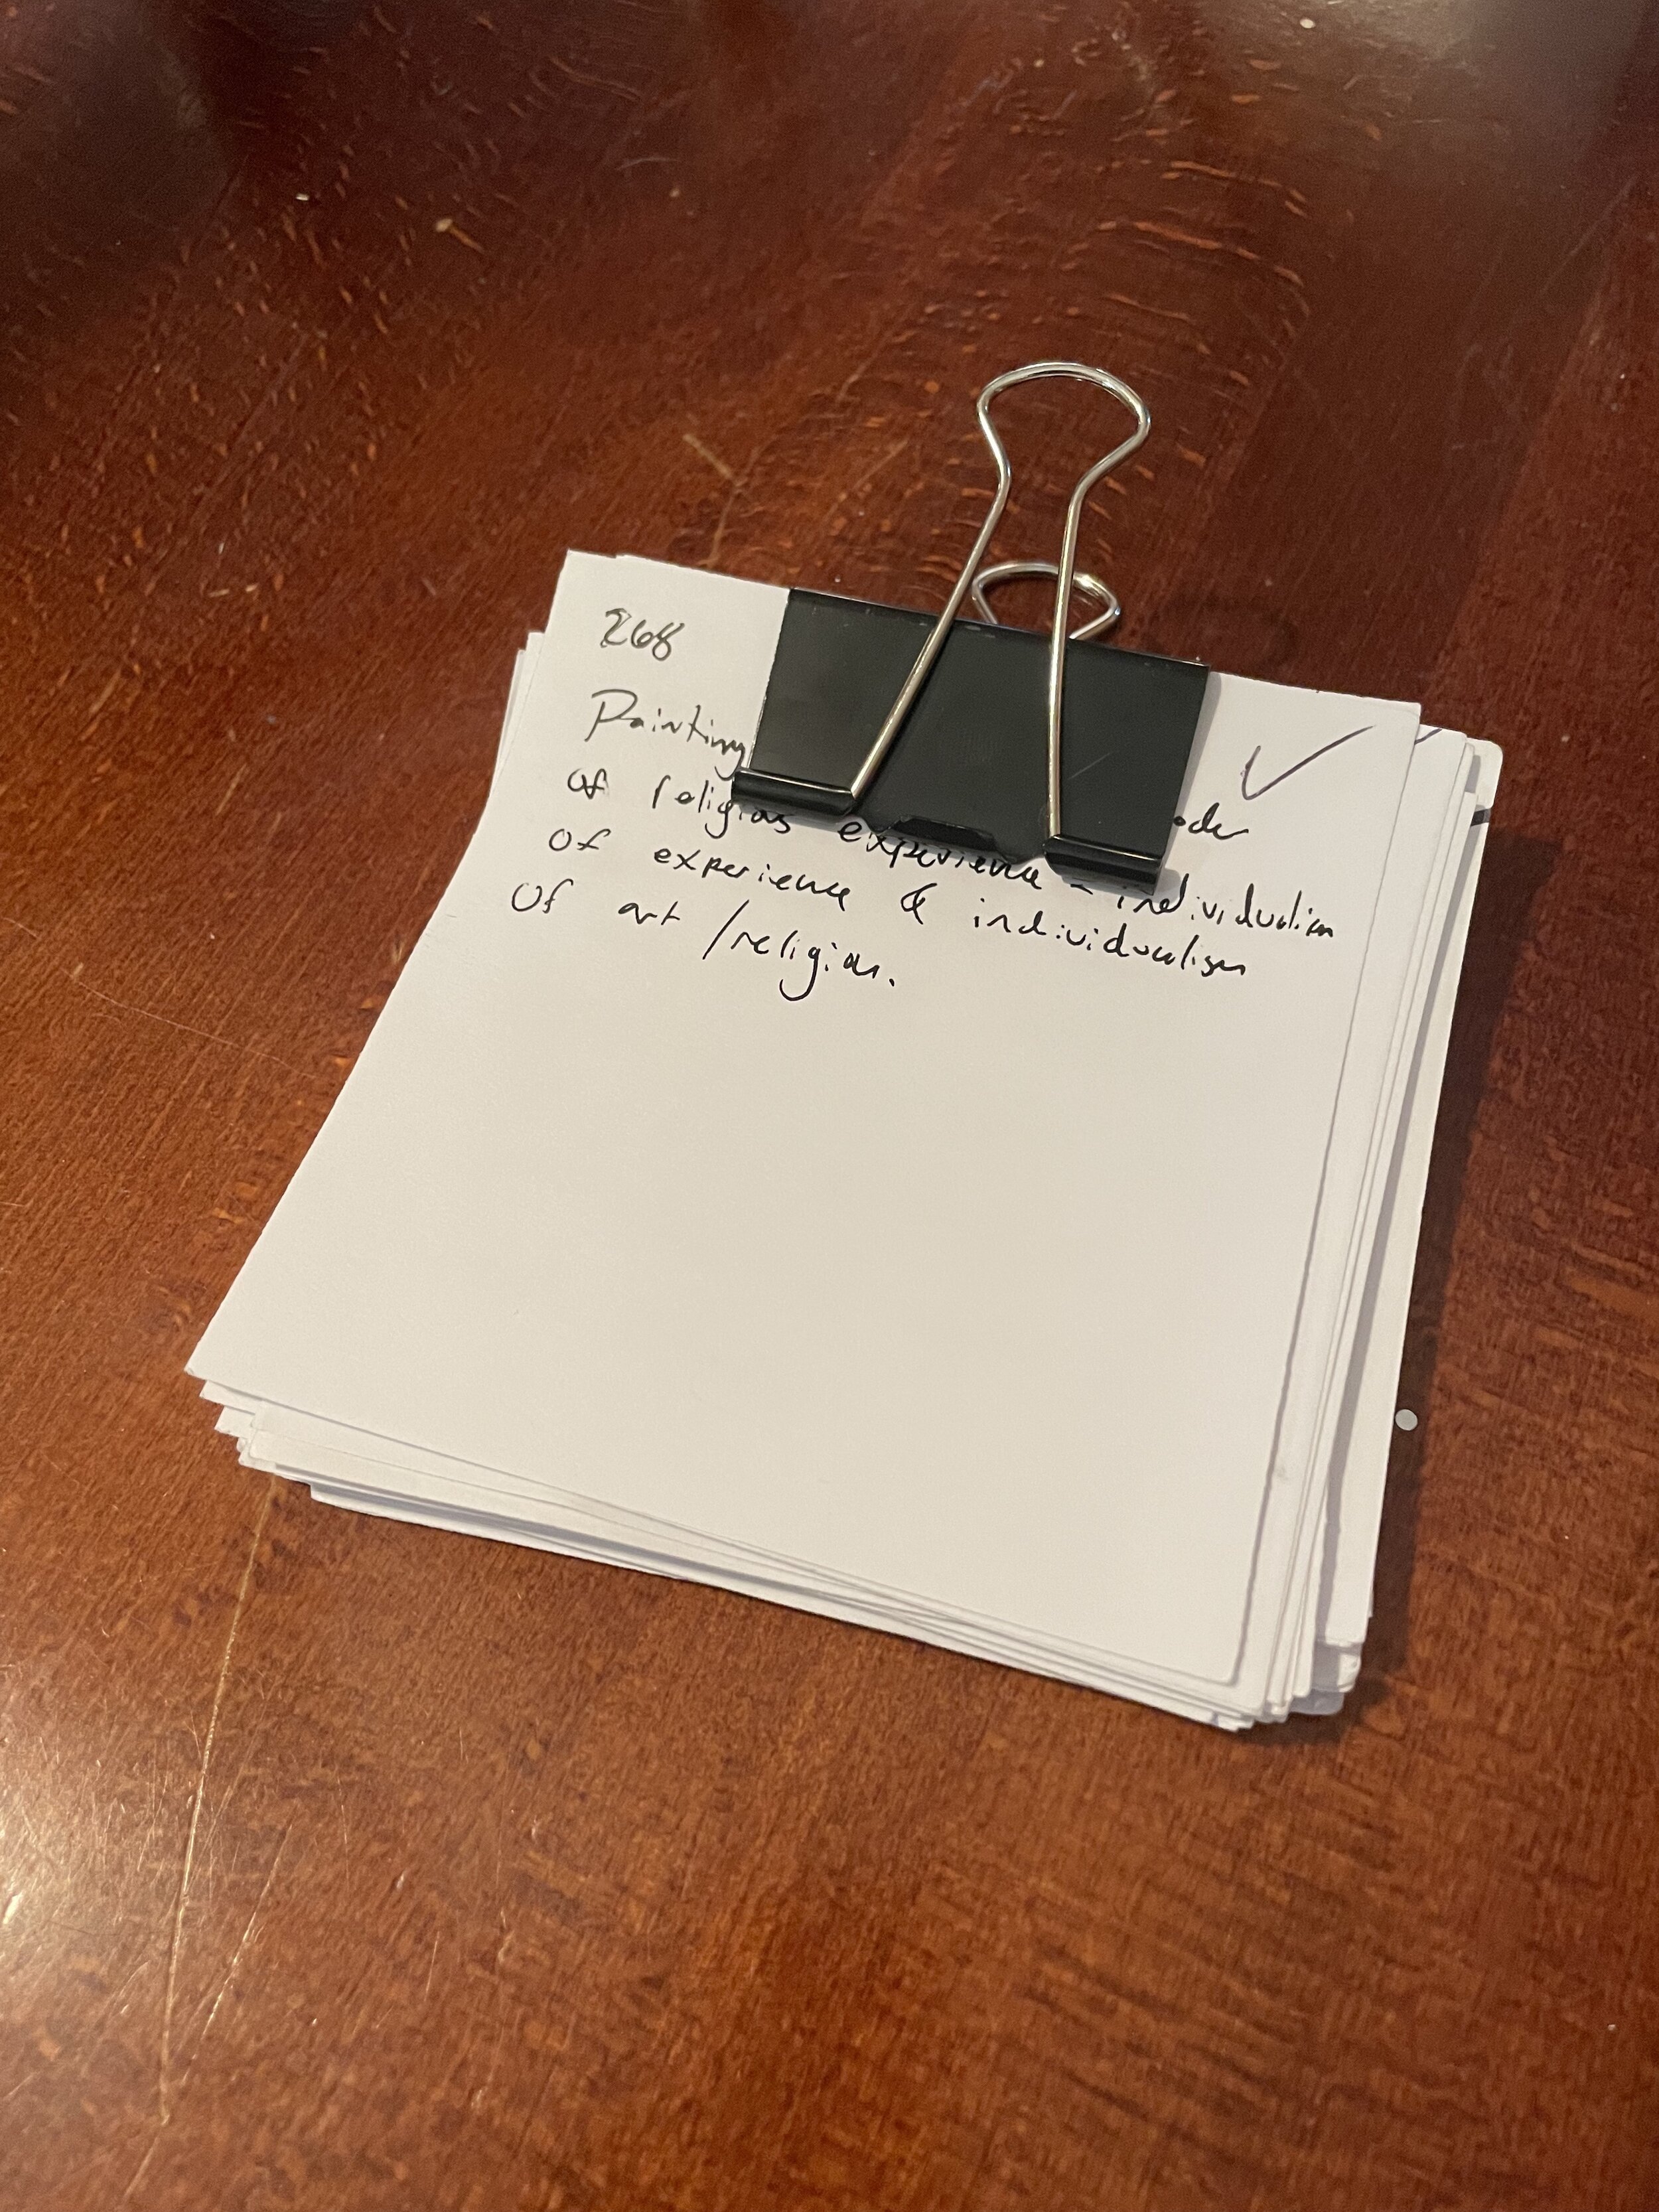 268
Painting
of religious experience = individualism
of experience & individualism
of art /religion.